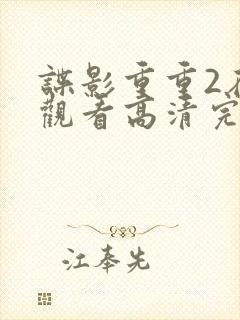 諜影重重2
觀看高清完
江奉先